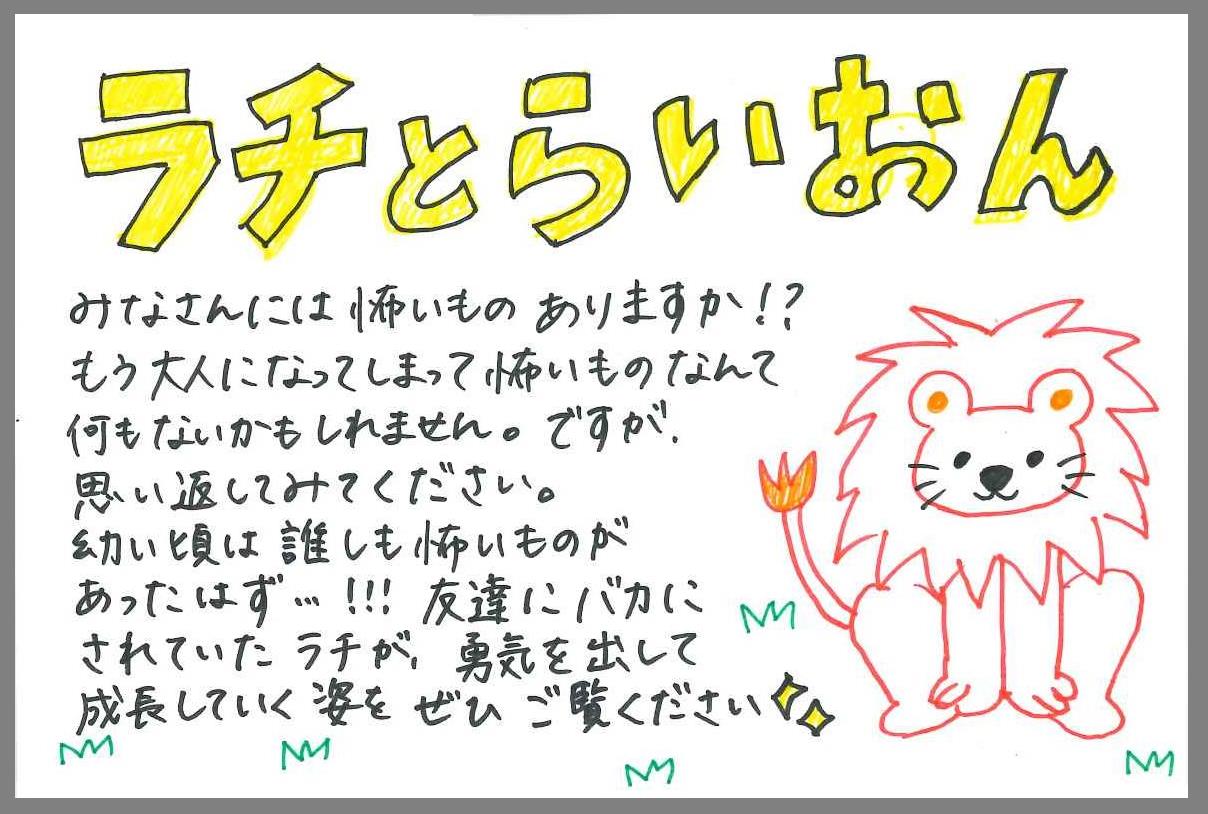 ラチとらいおん
みなさんには怖いものありますか!?
もう大人になってしまって怖いものなんて
何もないかもしれません。ですが、
思い返してみてください。
幼い頃は誰しも怖いものが
あったはず…!!! 友達にバカに
されていたラチが、勇気を出して
成長していく姿をぜひご覧ください